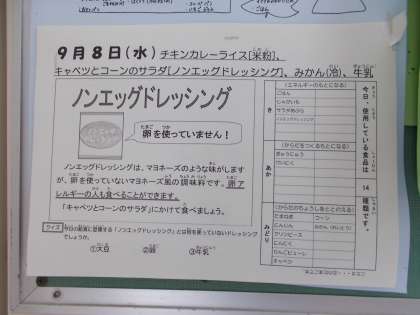 9月8日(水) チキンカレーライス[米粉]、
キャベツとコーンのサラダ[ノンエッグドレッシング]、みかん(冷)、牛乳
ノンエッグドレッシング
ノンエッグ
ドレッシング
卵を使っていません!
ノンエッグドレッシングは、マヨネーズのような味がします
が、卵を使っていないマヨネーズ風の調味料です。卵ア
レルギーの人も食べることができます。
「キャベツとコーンのサラダ」にかけて食べましょう。
クイズ
今日の給食に登場する「ノンエッグドレッシング」とは何を使っていないドレッシング
でしょうか。
①大豆 ②卵 ③牛乳
今日、使用している食品は 14 種類です。
き
(エネルギーのもとになる)
ごはん
じゃがいも
サラダあぶら
ノンエッグドレッシング
あか
(からだをつくるもとになる)
ぎゅうにゅう
とりにく
みどり
(からだのちょうしをととのえる)
たまねぎ
コーン
にんじん
みかん(れいとう)
グリンピース
にんにく
りんごピューレ
キャベツ